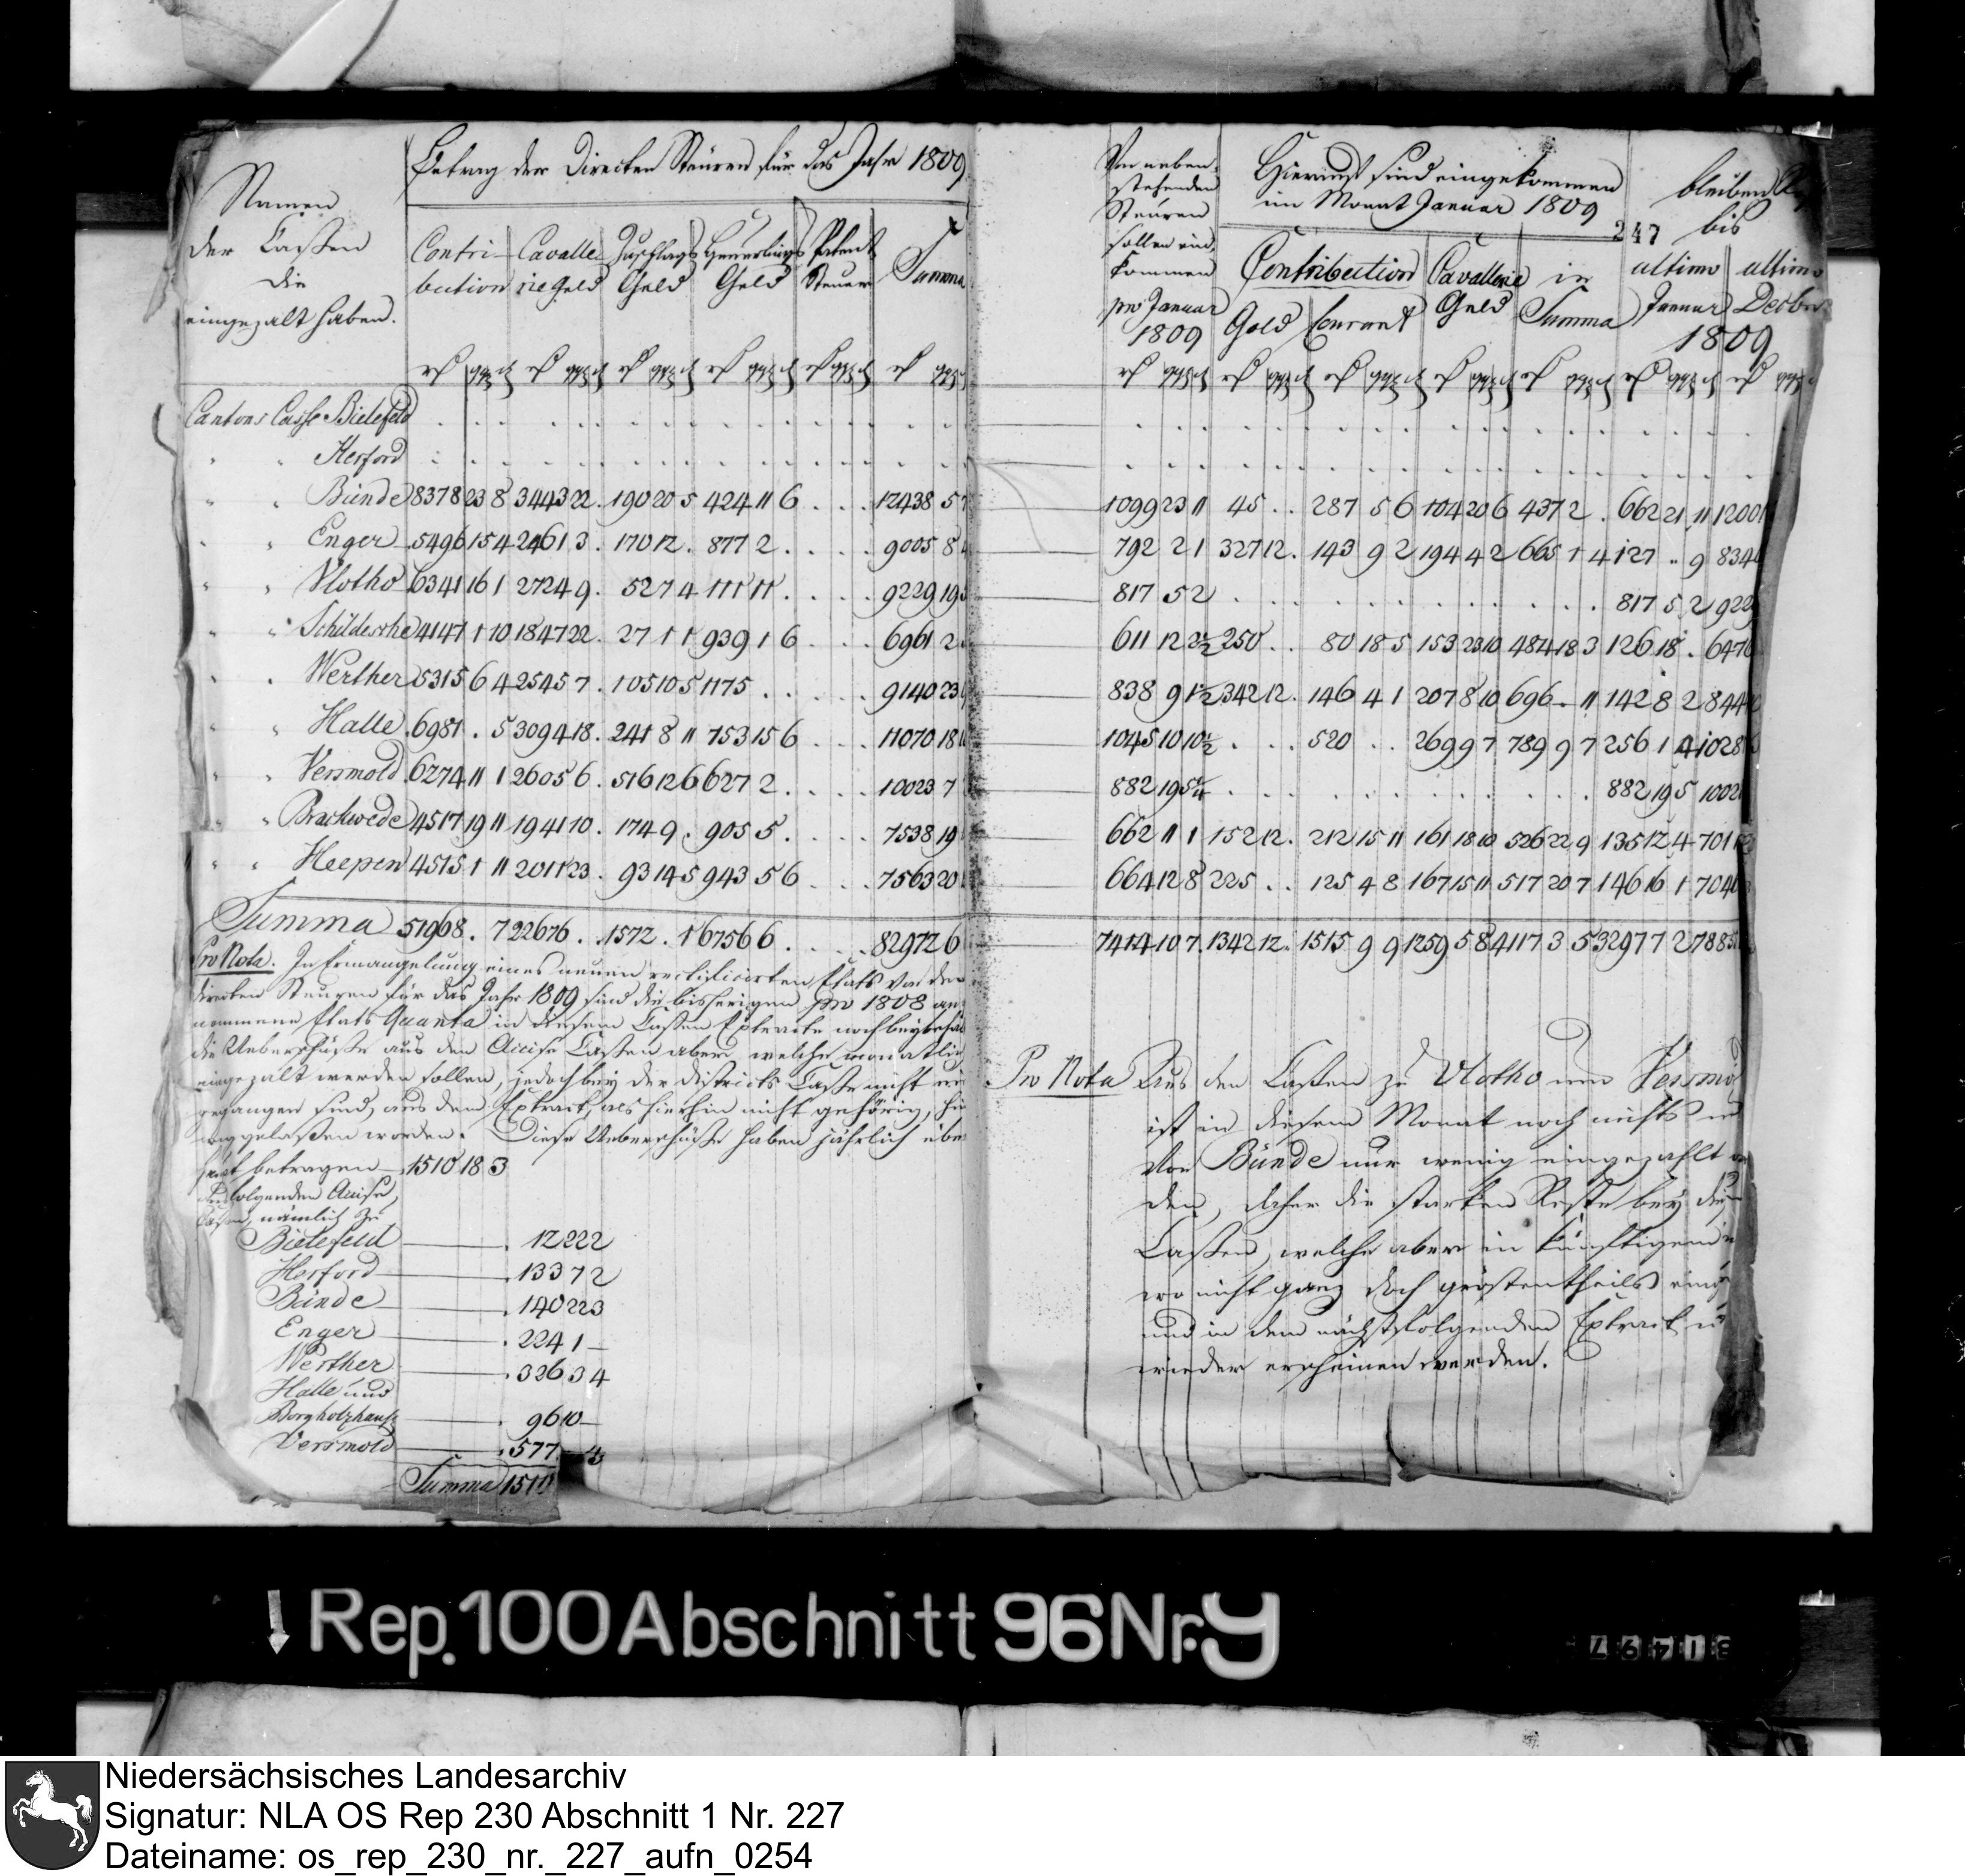 Namen
der Cassen
die
eingezalt haben.
Betrag der Directen Steuren für das Jahr 1809
Contri-
bution
Cavalle-
rie Geld
Zuschlags
Geld
Heuerlings
Geld
Patent
Steuer
Summa
Cantons Casse Bielefeld
" " Herford
" " Bünde 8378 23 8 3443 22 . 190 20 5 424 11 6 . . . 12438 5 7
" " Enger 5496 15 4 2461 3 . 170 12 . 877 2 . . . . 9005 8 4
" " Vlotho 6341 16 1 2724 9 . 52 7 4 111 11 . . . . 9229 19 5
" " Schildesche 4147 1 10 1847 22 . 27 1 1 939 1 6 . . . 6961 2
" " Werther 5315 6 4 2545 7 . 105 10 5 1175 . . . . 9140 23
" " Halle 6981 . 5 3094 18 . 241 8 11 753 15 6 . . . 11070 18
" " Versmold 6274 11 1 2605 6 . 516 12 6 627 2 . . . . 10023 7
" " Brackwede 4517 19 11 1941 10 . 174 9 . 905 5 . . . . 7538 19
" " Heepen 4515 1 11 2011 23 . 93 14 5 943 5 6 . . . 7563 20
Summa 51968 . 7 22676 . . 1572 . 1 6756 6 . . . . 82972 6
Pro Nota. In Ermangelung eines neuen rectificirten Etats von den
directen Steuren für das Jahr 1809 sind die bisherigen pro 1808 an-
nommene Etats Quanta in diesem Cassen Extracte noch beybehal
die Ueberschüsse aus den Accise Cassen aber, welche monatlich
eingezalt werden sollen, jedoch bey der Districts Casse nicht ein
gegangen sind, aus dem Extract, als hierhin nicht gehörig, hin
weggelassen worden. Diese Ueberschüsse haben jährlich über
betragen 1510 18 3
folgenden Accise
Cassen, nämlich zu
Bielefeld 12 22 2
Herford 133 7 2
Bünde 140 22 3
Enger 224 1 –
Werther 326 3 4
Halle und
Borgholzhaus 96 10 –
Versmold 577
Summa 1510
Von neben-
stehenden
Steuren
sollen ein-
kommen
pro Januar
1809
Hierauf sind eingekommen
im Monat Januar 1809
Contribution
Gold Courant
Cavallerie
Geld
in
Summa
bleiben
247 bis
ultimo ultimo
Januar Decbr.
1809
1099 23 11 45 . . 287 5 6 104 20 6 437 2 . 662 21 11 1200
792 2 1 327 12 . 143 9 2 194 4 2 665 1 4 127 " 9 834
817 5 2 . . . . . . . . . . . . 817 5 2 922
611 12 2½ 250 . . 80 18 5 153 23 10 484 18 3 126 18 . 647
838 9 1½ 342 12 . 146 4 1 207 8 10 696 – 11 142 8 2 844
1045 10 10½ . . . 520 . . 269 9 7 789 9 7 256 1 4 1028
882 19 5¼ . . . . . . . . . . . . 882 19 5 1002
662 11 1 152 12 . 212 15 11 161 18 10 526 22 9 135 12 4 701
664 12 8 225 . . 125 4 8 167 15 11 517 20 7 146 16 1 704
7414 10 7 1342 12 . 1515 9 9 1259 5 8 4117 3 5 3297 7 2 7885
Pro Nota Aus den Cassen zu Vlotho und Versmo
ist in diesem Monat noch nichts und
von Bünde nur wenig eingezahlt
den, daher die starken Reste bey diesen
Cassen, welche aber in künftigem
wo nicht ganz doch gröstentheils eing
und in dem nächstfolgenden Extract
wieder erscheinen werden.
↓ Rep. 100 Abschnitt 96 Nr. 9
31497
Niedersächsisches Landesarchiv
Signatur: NLA OS Rep 230 Abschnitt 1 Nr. 227
Dateiname: os_rep_230_nr._227_aufn_0254